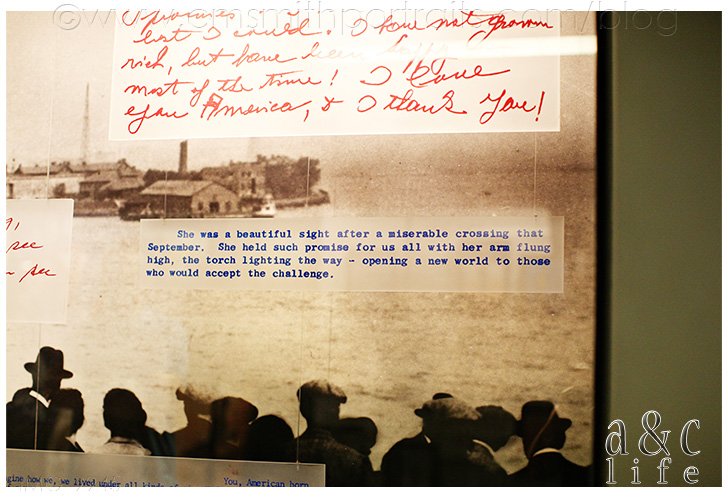 © www.gmsmithportraits.com/blog ©
best I could. I have not grown
rich, but have been
most of the time! I Love
you America, & I thank You!
see
see
She was a beautiful sight after a miserable crossing that
September. She held such promise for us all with her arm flung
high, the torch lighting the way - opening a new world to those
who would accept the challenge.
agine how we, we lived under all kinds of
You, American born
a & c
life